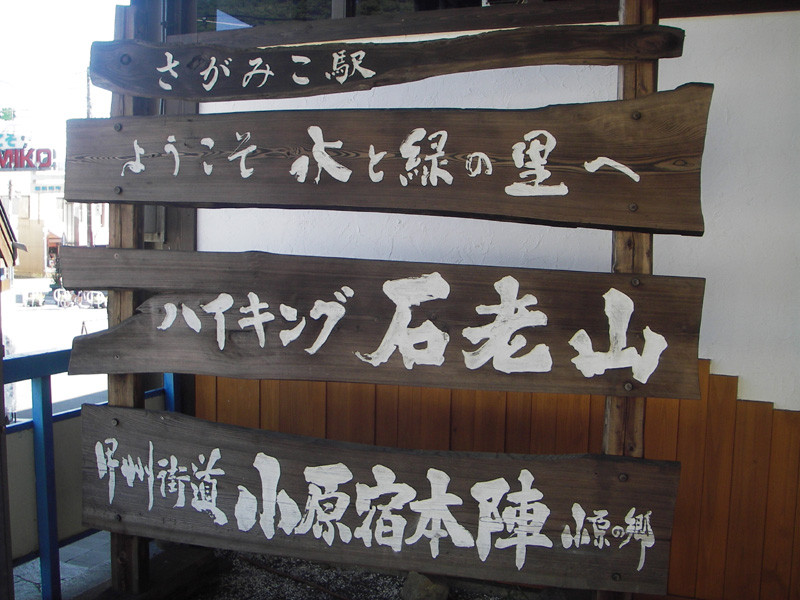 さがみこ駅
ようこそ 水と緑の里へ
ハイキング 石老山
甲州街道 小原宿本陣 小原の郷
MIKO